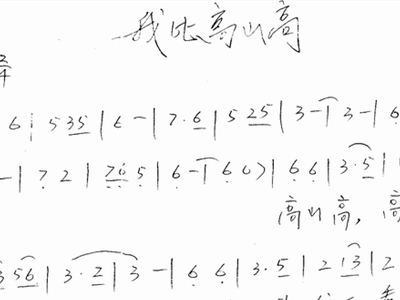 我比高山高
2/4
6 | 5 35 | 6 - | 7·6 | 5 25 | 3 - | 3 - | 6
- | 7 2 | 76 5 | 6 - | 6 0) | 6 6 | 3·5 |
高山高，高
356 | 3·2 | 3 - | 6 6 | 3·5 | 2 13 | 2